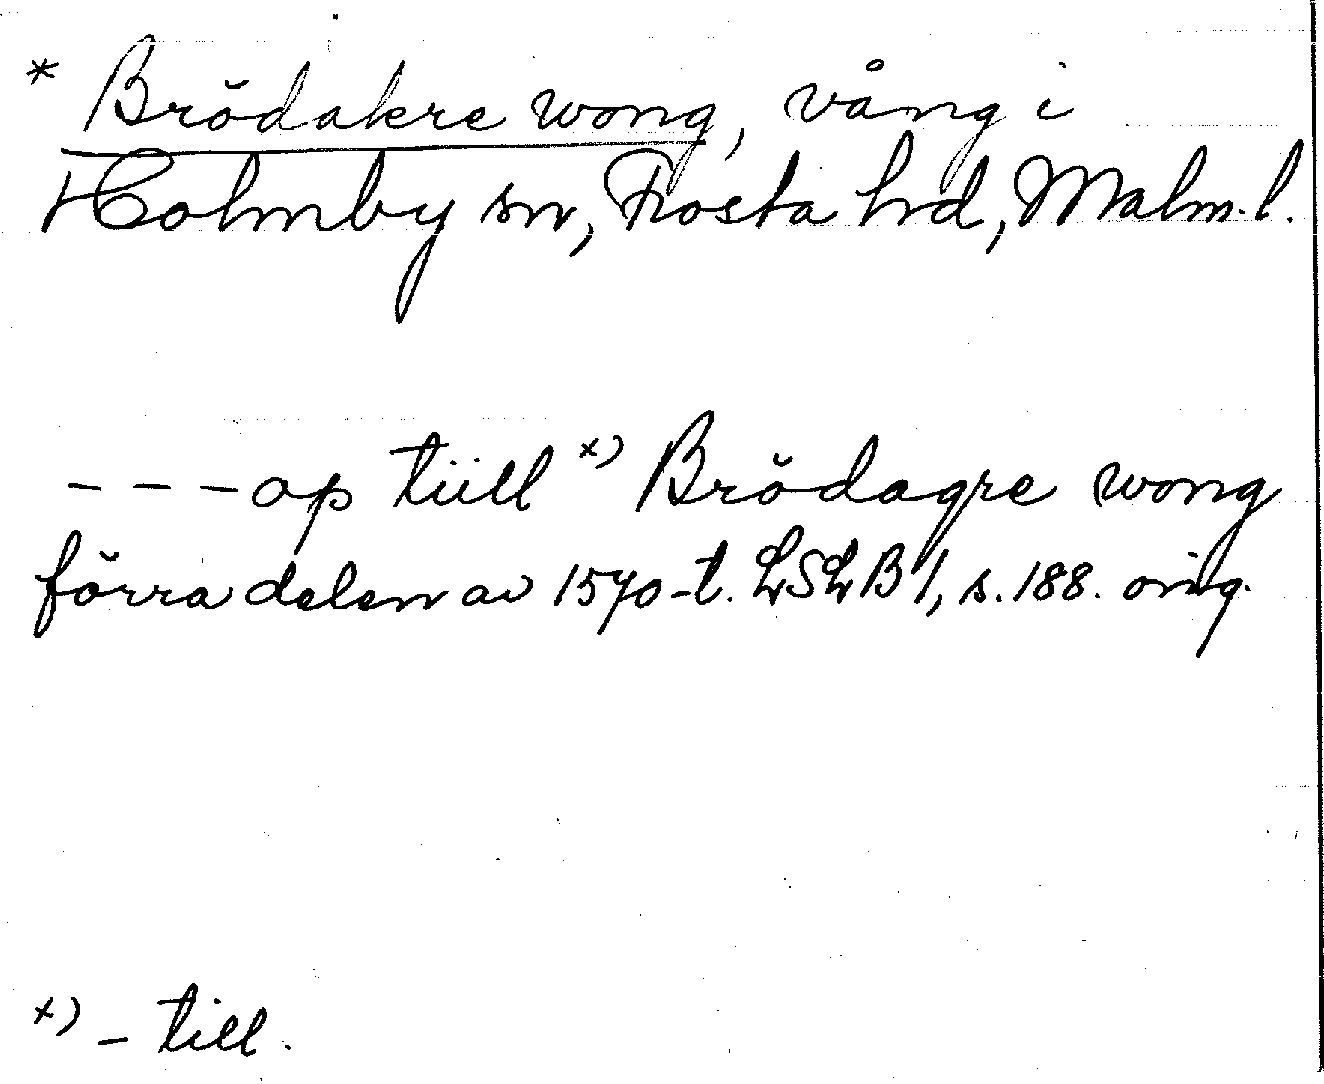 * Brŏdakre wong, vång i
Holmby sn, Frosta hrd, Malm. l.
- - - op tiill x) Brŏdagre wong
förra delen av 1570-t. LSLB 1, s. 188. orig.
x) - till.